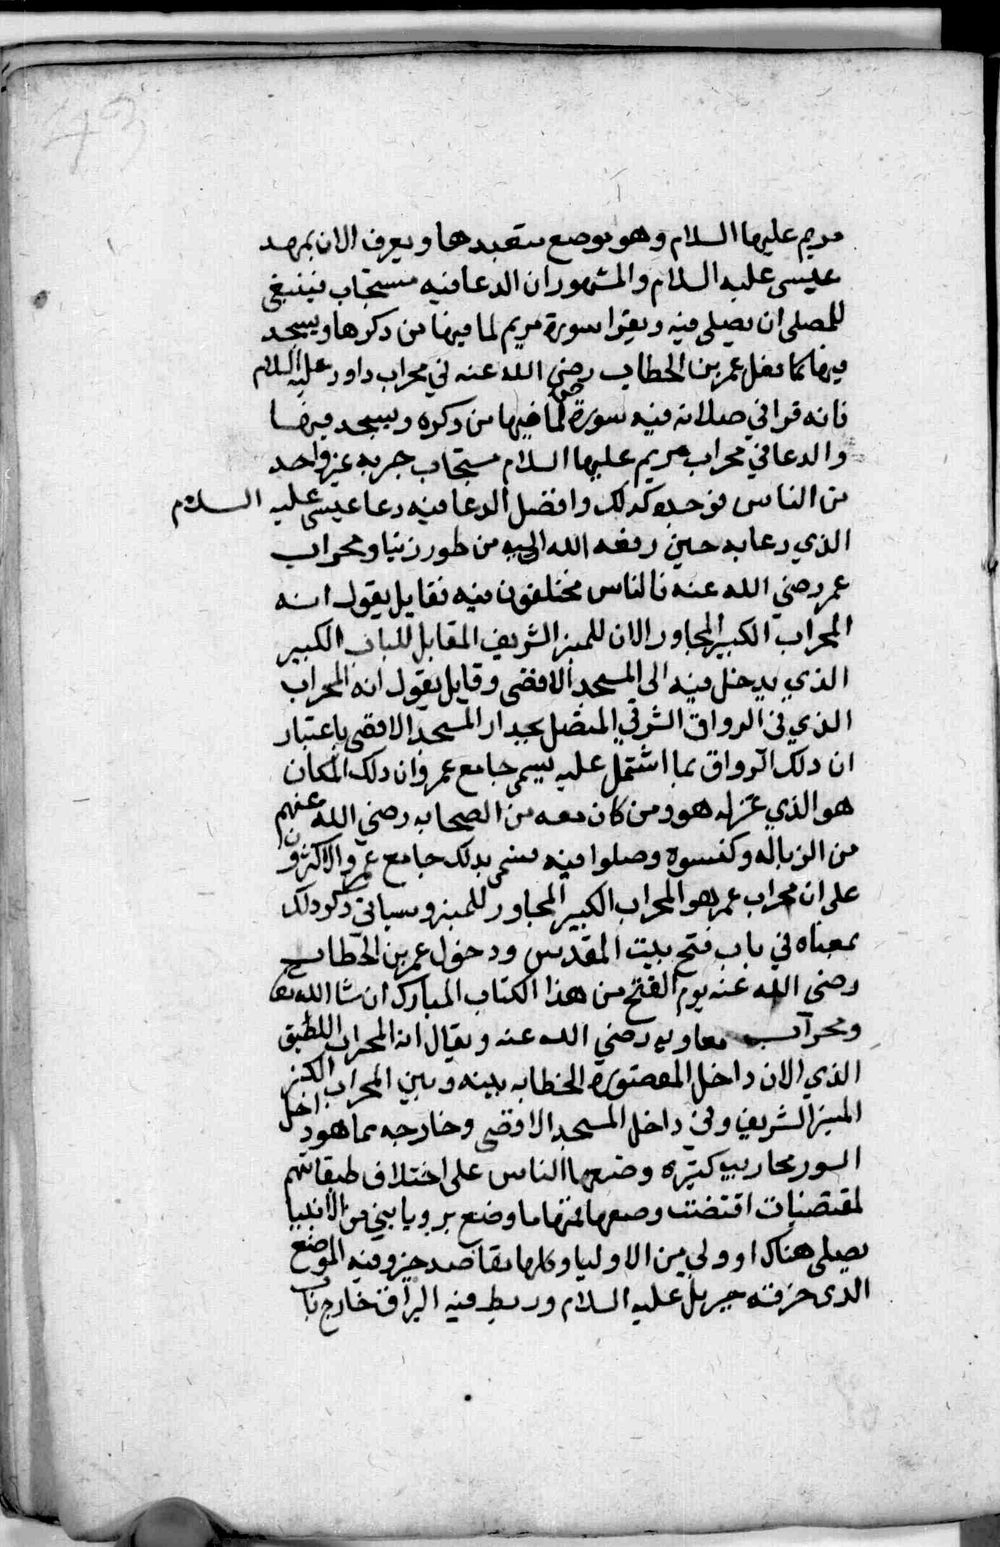 43
مريم عليها السلام وهو موضع متعبدها ويعرف الان بمهد
عيسى عليه السلام والمشهور ان الدعا فيه مستجاب فينبغي
للمصلى ان يصلى فيه ويقرا سورة مريم لما فيها من ذكرها ويسجد
فيها كما فعل عمر بن الخطاب رضي الله عنه في محراب داود عليه السلام
فانه قرا في صلاته فيه سورة ص لما فيها من ذكره ويسجد فيها
والدعا في محراب مريم عليها السلام مستجاب جربه غير واحد
من الناس فوجدوه كذلك وافضل الدعا فيه دعا عيسى عليه السلام
الذي دعا به حين رفعه الله اليه من طور زيتا ومحراب
عمر رضي الله عنه فالناس مختلفون فيه فقايل يقول انه
المحراب الكبير المجاور الان للمنبر الشريف المقابل للباب الكبير
الذي يدخل منه الى المسجد الاقصى وقايل يقول انه المحراب
الذي في الرواق الشرقي المتصل بجدار المسجد الاقصى باعتبار
ان ذلك الرواق بما اشتمل عليه يسمى جامع عمر وان ذلك المكان
هو الذي عزله هو ومن كان معه من الصحابه رضي الله عنهم
من الزباله وكنسوه وصلوا فيه فسمى بذلك جامع عمر والاكثرون
على ان محراب عمر هو المحراب الكبير المجاور للمنبر وسياتي ذكر ذلك
بمعناه في باب فتح بيت المقدس ودخول عمر بن الخطاب
رضي الله عنه يوم الفتح من هذا الكتاب المبارك ان شا الله تعا
ومحراب معاويه رضي الله عنه ويقال انه المحراب اللطيف
الذي الان داخل المقصورة الخطابه بينه وبين المحراب الكبير
المنبر الشريف وفي داخل المسجد الاقصى وخارجه مما هو داخل
السور محاريب كثيره وضعها الناس على اختلاف طبقاتهم
لمقتضيات اقتضت وضعها فمنها ما وضع برويا نبي من الانبيا
يصلى هناك او ولي من الاوليا وكلها مقاصد خير وفيه الموضع
الذي خرقه جبريل عليه السلام وربط فيه البراق خارج باب